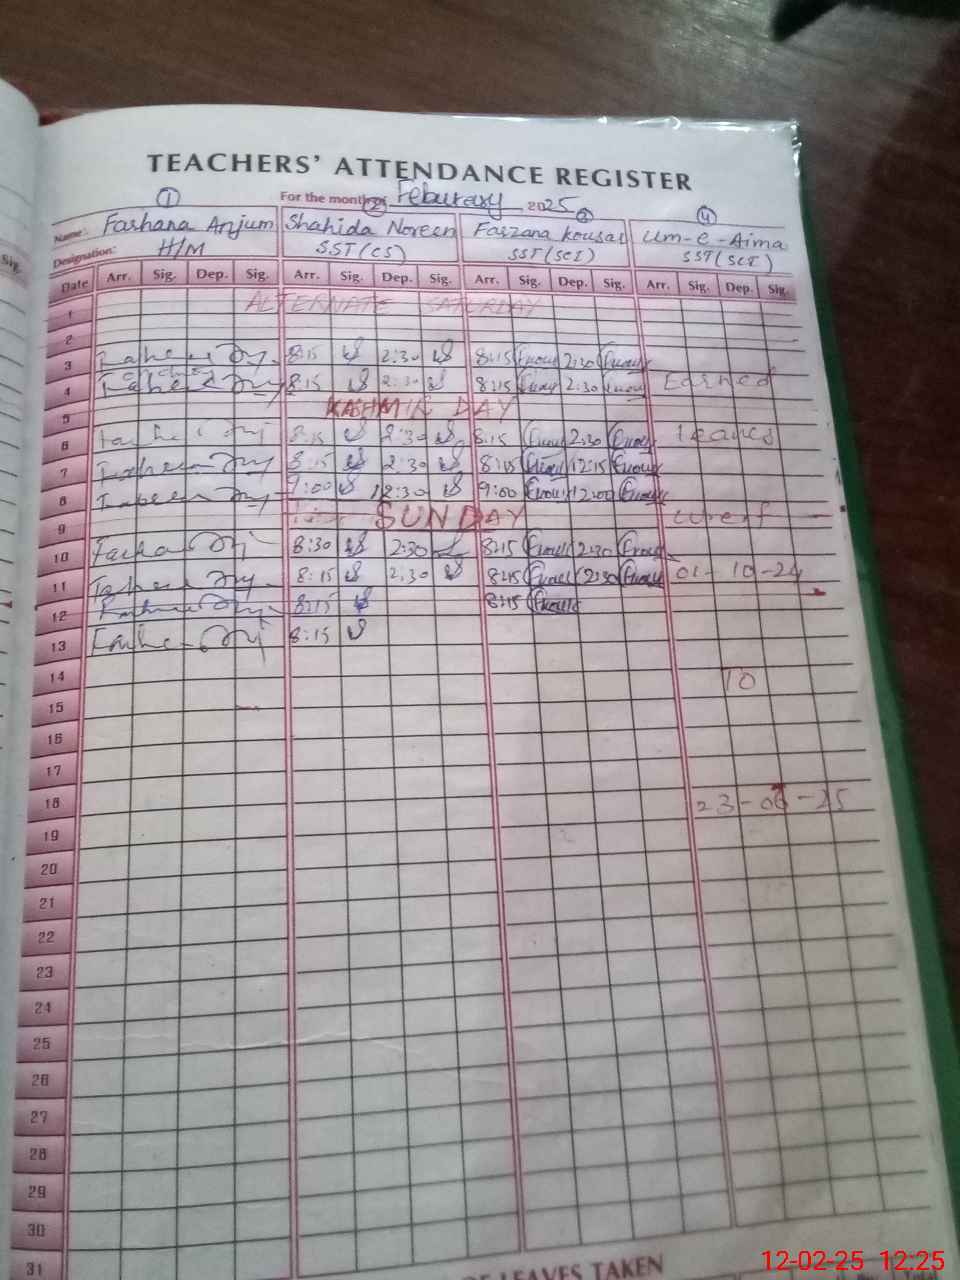 TEACHERS' ATTENDANCE REGISTER
For the month of Feburary 2025
1 2 3 4
Name: Farhana Anjum Shahida Noreen Farzana Kousar Um-e-Aima
Designation: H/M SST(CS) SST(SCI) SST(SCI)
Date Arr. Sig. Dep. Sig. Arr. Sig. Dep. Sig. Arr. Sig. Dep. Sig. Arr. Sig. Dep. Sig.
1 ALTERNATE SATURDAY
2
3 8:15 2:30 8:15 2:30
4 8:15 2:30 8:15 2:30 Earned
5 KASHMIR DAY
6 8:15 2:30 8:15 2:30 leaves
7 8:15 2:30 8:15 12:15
8 9:00 12:30 9:00 12:00
9 SUNDAY w.e.f
10 8:30 2:30 8:15 2:30
11 8:15 2:30 8:15 2:30 01-10-24
12 8:15 8:15
13 8:15
14 TO
15
16
17
18 23-06-25
19
20
21
22
23
24
25
26
27
28
29
30
31
OF LEAVES TAKEN
Sig.
12-02-25 12:25